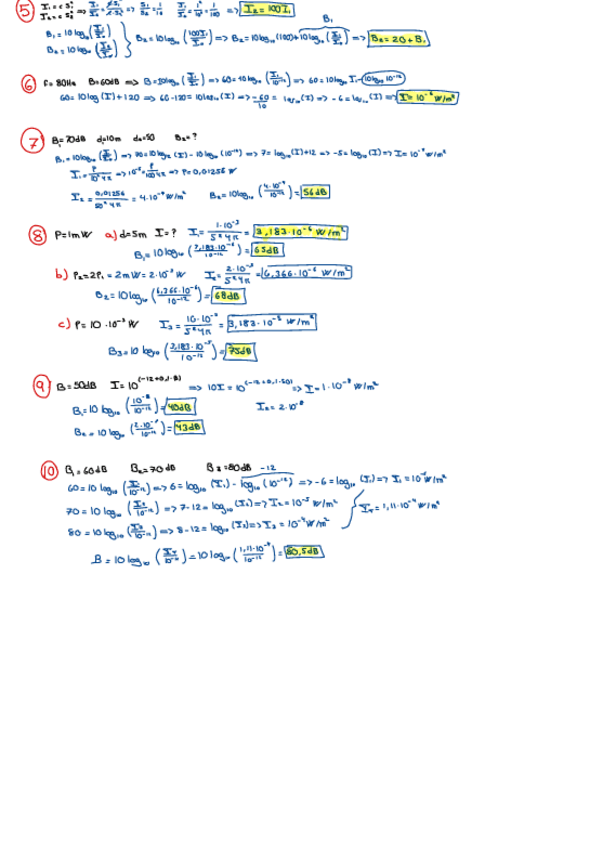 5 I₁ = c S₁² I₂ = c S₂² => I₁/I₂ = c·S₁²/c·S₂² => S₁/S₂ = 1/10 I₁/I₂ = 1²/10² = 1/100 => I₂ = 100I₁
B₁
B₁ = 10 log₁₀ (I₁/I₀)
B₂ = 10 log₁₀ (I₂/I₀) } B₂ = 10 log₁₀ (100I₁/I₀) => B₂ = 10 log₁₀ (100) + 10 log₁₀ (I₁/I₀) => B₂ = 20 + B₁
6 f = 80Hz B = 60dB => B = 10 log₁₀ (I/I₀) => 60 = 10 log₁₀ (I/10⁻¹²) => 60 = 10 log₁₀ I - 10 log₁₀ 10⁻¹²
60 = 10 log (I) + 120 => 60 - 120 = 10 log₁₀ (I) => -60/10 = log₁₀ (I) => -6 = log₁₀ (I) => I = 10⁻⁶ W/m²
7 B₁ = 70dB d₁ = 10m d₂ = 50 B₂ = ?
B₁ = 10 log₁₀ (I/I₀) => 70 = 10 log₁₀ (I) - 10 log₁₀ (10⁻¹²) => 7 = log₁₀ (I) + 12 => -5 = log₁₀ (I) => I = 10⁻⁵ W/m²
I₁ = P/10² 4π => 10⁻⁵ = P/100 4π => P = 0,01256 W
I₂ = 0,01256/50² 4π = 4·10⁻⁷ W/m² B₂ = 10 log₁₀ (4·10⁻⁷/10⁻¹²) = 56dB
8 P = 1mW a) d = 5m I = ? I₁ = 1·10⁻³/5² 4π = 3,183·10⁻⁶ W/m²
B₁ = 10 log₁₀ (3,183·10⁻⁶/10⁻¹²) = 65dB
b) P₂ = 2P₁ = 2mW = 2·10⁻³ W I₂ = 2·10⁻³/5² 4π = 6,366·10⁻⁶ W/m²
B₂ = 10 log₁₀ (6,366·10⁻⁶/10⁻¹²) = 68dB
c) P = 10·10⁻³ W I₃ = 10·10⁻³/5² 4π = 3,183·10⁻⁵ W/m²
B₃ = 10 log₁₀ (3,183·10⁻⁵/10⁻¹²) = 75dB
9 B = 50dB I = 10^(-12+0,1·B) => 10I = 10^(-12+0,1·50) => I = 1·10⁻⁸ W/m²
B₁ = 10 log₁₀ (10⁻⁸/10⁻¹²) = 40dB I₂ = 2·10⁻⁸
B₂ = 10 log₁₀ (2·10⁻⁸/10⁻¹²) = 43dB
10 B₁ = 60dB B₂ = 70dB B₃ = 80dB -12
60 = 10 log₁₀ (I₁/10⁻¹²) => 6 = log₁₀ (I₁) - log₁₀ (10⁻¹²) => -6 = log₁₀ (I₁) => I₁ = 10⁻⁶ W/m²
70 = 10 log₁₀ (I₂/10⁻¹²) => 7-12 = log₁₀ (I₂) => I₂ = 10⁻⁵ W/m² } I_T = 1,11·10⁻⁴ W/m²
80 = 10 log₁₀ (I₃/10⁻¹²) => 8-12 = log₁₀ (I₃) => I₃ = 10⁻⁴ W/m²
B = 10 log₁₀ (I_T/10⁻¹²) = 10 log₁₀ (1,11·10⁻⁴/10⁻¹²) = 80,5dB